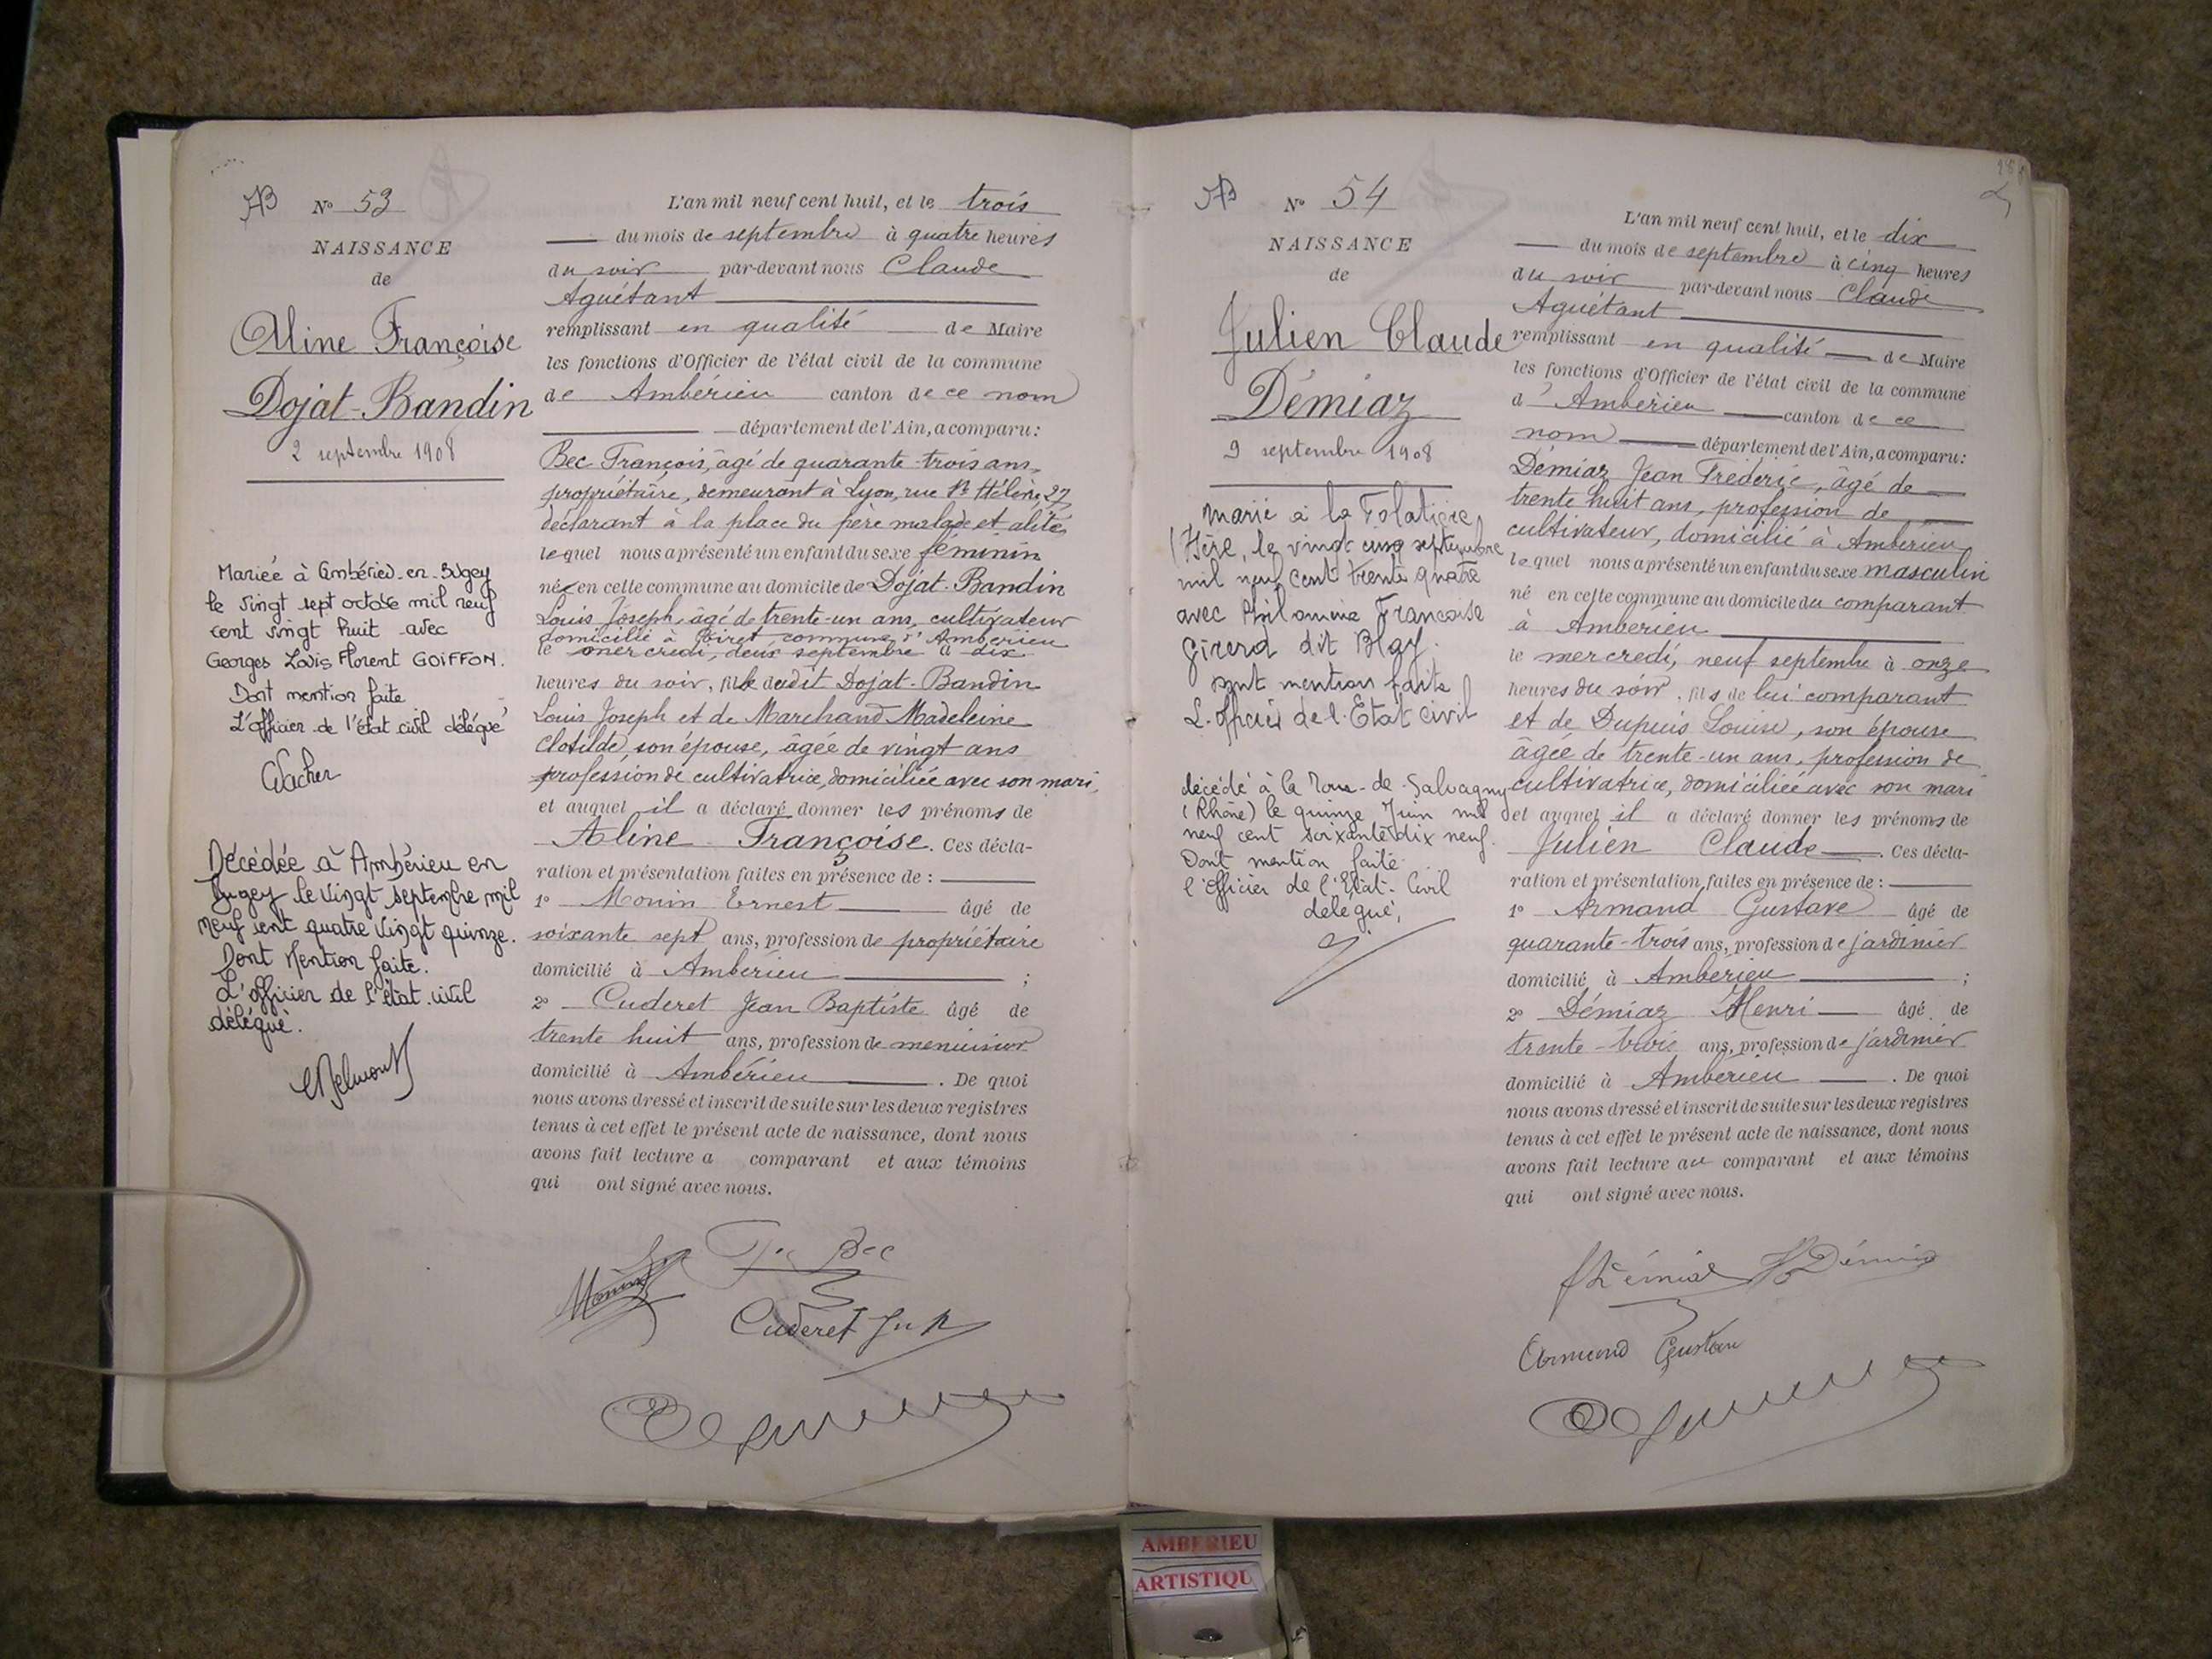 AB N° 53
NAISSANCE
de
Aline Françoise
Dojat-Bandin
2 septembre 1908
Mariée à Ambérieu-en-Bugey
le vingt sept octobre mil neuf
cent vingt huit avec
Georges Louis Florent GOIFFON.
Dont mention faite
L'officier de l'état civil délégué
Décédée à Ambérieu en
Bugey le vingt septembre mil
neuf cent quatre vingt quinze.
Dont Mention faite.
L'officier de l'état civil
délégué.
L'an mil neuf cent huit, et le trois
du mois de septembre à quatre heures
du soir par-devant nous Claude
Aguétant
remplissant en qualité de Maire
les fonctions d'Officier de l'état civil de la commune
de Ambérieu canton de ce nom
département de l'Ain, a comparu :
Bec François, âgé de quarante-trois ans,
propriétaire, demeurant à Lyon, rue Ste Hélène, 27,
déclarant à la place du père malade et alité,
lequel nous a présenté un enfant du sexe féminin
née en cette commune au domicile de Dojat-Bandin
Louis Joseph, âgé de trente-un ans, cultivateur
domicilié à commune d'Ambérieu
le mercredi, deux septembre à dix
heures du soir, fille dudit Dojat-Bandin
Louis Joseph et de Marchand Madeleine
Clotilde, son épouse, âgée de vingt ans
profession de cultivatrice, domiciliée avec son mari,
et auquel il a déclaré donner les prénoms de
Aline Françoise. Ces décla-
ration et présentation faites en présence de :
1° Monin Ernest âgé de
soixante sept ans, profession de propriétaire
domicilié à Ambérieu ;
2° Cuderet Jean Baptiste âgé de
trente huit ans, profession de menuisier
domicilié à Ambérieu . De quoi
nous avons dressé et inscrit de suite sur les deux registres
tenus à cet effet le présent acte de naissance, dont nous
avons fait lecture a comparant et aux témoins
qui ont signé avec nous.
Bec
Monin
Cuderet
AB N° 54
NAISSANCE
de
Julien Claude
Démiaz
9 septembre 1908
Marié à la Folatière
(Isère, le vingt cinq septembre
mil neuf cent trente quatre
avec Philomène Françoise
Girerd dit Blay.
dont mention faite
L'officier de l'Etat civil
décédé à la Tour-de-Salvagny
(Rhône) le quinze Juin mil
neuf cent soixante dix neuf.
Dont mention faite
l'Officier de l'Etat-Civil
délégué,
L'an mil neuf cent huit, et le dix
du mois de septembre à cinq heures
du soir par-devant nous Claude
Aguétant
remplissant en qualité de Maire
les fonctions d'Officier de l'état civil de la commune
d'Ambérieu canton de ce
nom département de l'Ain, a comparu :
Démiaz Jean Fréderic, âgé de
trente huit ans, profession de
cultivateur, domicilié à Ambérieu
lequel nous a présenté un enfant du sexe masculin
né en cette commune au domicile du comparant
à Ambérieu
le mercredi, neuf septembre à onze
heures du soir, fils de lui comparant
et de Dupuis Louise, son épouse
âgée de trente-un ans, profession de
cultivatrice, domiciliée avec son mari
et auquel il a déclaré donner les prénoms de
Julien Claude . Ces décla-
ration et présentation faites en présence de :
1° Armand Gustave âgé de
quarante-trois ans, profession de jardinier
domicilié à Ambérieu ;
2° Démiaz Henri âgé de
trente-trois ans, profession de jardinier
domicilié à Ambérieu . De quoi
nous avons dressé et inscrit de suite sur les deux registres
tenus à cet effet le présent acte de naissance, dont nous
avons fait lecture au comparant et aux témoins
qui ont signé avec nous.
Armand Gustave
AMBERIEU
ARTISTIQU